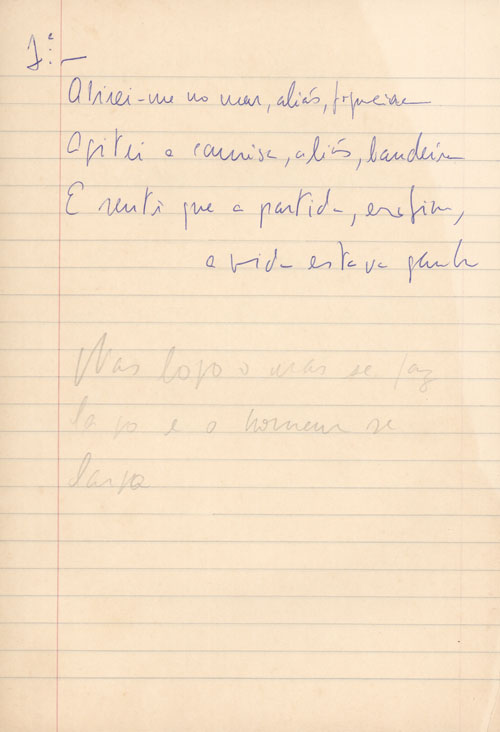 1º:-
Atirei-me no mar, aliás, fogueira
Agitei a camisa, aliás, bandeira
E senti que a partida, enfim,
a vida estava ganha
Mas logo o mar se faz
lago e o homem se
larga